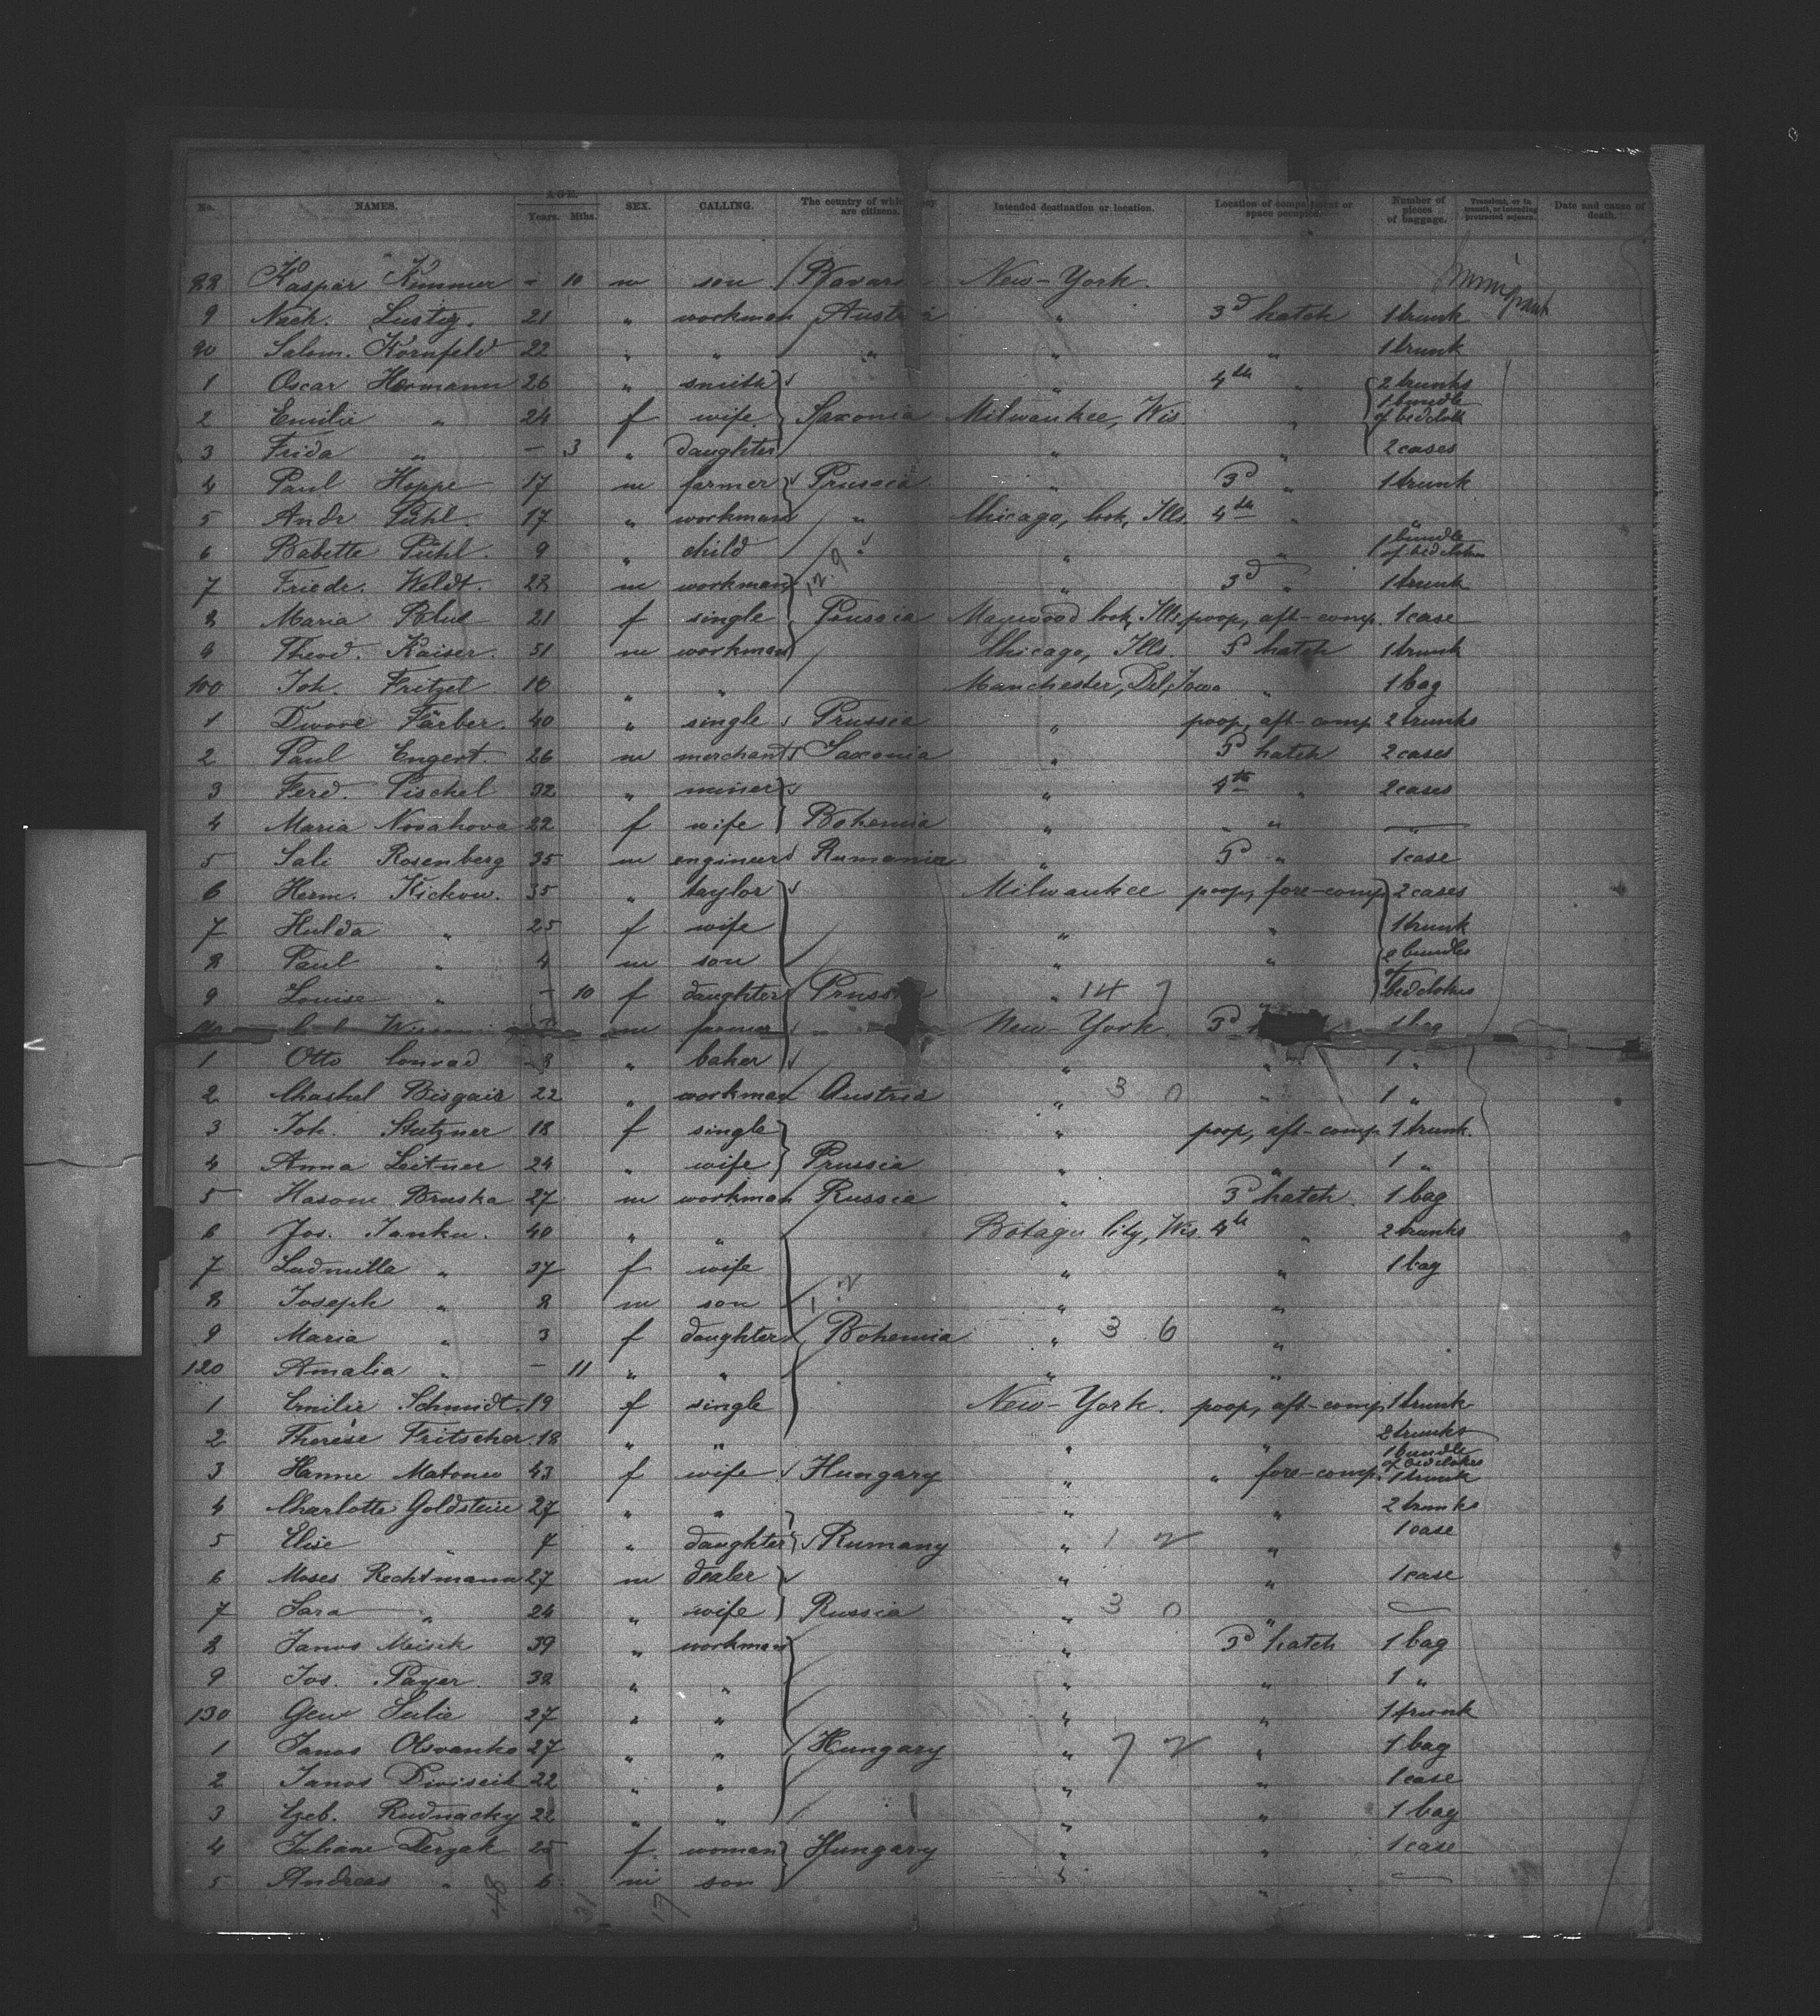 No. NAMES. AGE. Years. Mths. SEX. CALLING. The country of which they are citizens. Intended destination or location. Location of compartment or space occupied. Number of pieces of baggage. Transient, or in transit, or intending protracted sojourn. Date and cause of death.
88 Kaspar Kummer - 10 m son Bavaria New-York. Immigrant
9 Nach. Lustig. 21 " workman Austria " 3d hatch 1 trunk
90 Salom. Kornfeld 22 " " " " " 1 trunk
1 Oscar Hermann 26 " smith " 4th " 2 trunks
2 Emilie " 24 f wife Saxonia Milwaukee, Wis. " 1 bundle of bedcloth
3 Frida " - 3 " daughter " " 2 cases
4 Paul Hoppe 17 m farmer Prussia " 3d " 1 trunk
5 Andr Pühl. 17 " workman " Chicago, Cook, Ills. 4th " "
6 Babette Pühl. 9 " child " " " 1 bundle of bedclothes
7 Friedr. Weldt. 23 m workman 129 3d " 1 trunk
8 Maria Blue 21 f single Prussia Maywood Cook, Ills. poop, aft-comp. 1 case
9 Theod. Kaiser. 51 m workman Chicago, Ills. 3d hatch 1 trunk
100 Joh. Fritzel 16 " " Manchester, Del, Iowa " 1 bag
1 Dwore Färber. 40 " single Prussia " poop, aft-comp 2 trunks
2 Paul Engert. 26 m merchant Saxonia " 3d hatch 2 cases
3 Ferd. Pischel 32 " miner " 4th " 2 cases
4 Maria Novakova 22 f wife Bohemia " " " "
5 Sali Rosenberg 35 m engineer Rumania " 3d " 1 case
6 Herm. Kickow. 35 " taylor Milwaukee poop, fore-comp 2 cases
7 Hulda " 25 f wife " " 1 trunk
8 Paul " 4 m son " " 2 bundles
9 Louise " - 10 f daughter Prussia " 14 7 of bedclothes
m farmer " New-York 3d 1 bag
1 Otto Conrad " baker " " 1 "
2 Chaskel Bisgair 22 " workman Austria " 3 0 " 1 "
3 Joh. Statzner 18 f single " poop, aft-comp 1 trunk.
4 Anna Leitner 24 " wife Prussia " " 1 "
5 Hasone Bruska 27 m workman Russia " 3d hatch 1 bag
6 Jos. Janku. 40 " " Botagu City, Wis. 4th " 2 trunks
7 Ludmilla " 37 f wife " " 1 bag
8 Joseph " 8 m son 12 " "
9 Maria " 3 f daughter Bohemia " 3 6 "
120 Amalia " - 11 " " " "
1 Emilie Schmidt. 19 f single New-York. poop, aft-comp 1 trunk
2 Therese Fritscher. 18 " " " " 2 trunks
3 Hanne Matones 43 f wife Hungary " " fore-comp. 1 bundle of bedclothes 1 trunk
4 Charlotte Goldstein 27 " " " " 2 trunks
5 Elise " 7 " daughter Rumany " 1 2 " 1 case
6 Moses Rechtmann 27 m dealer " " 1 case
7 Sara " 24 " wife Russia " 3 0 "
8 Janos Meisik 39 " workman " 3d hatch 1 bag
9 Jos. Payer. 38 " " " " 1 "
130 Geu Sulie 27 " " " " 1 trunk
1 Janos Olsvanko 27 " " Hungary " 7 2 " 1 bag
2 Janos Diviseik 22 " " " " 1 case
3 Czeb. Rudnacky 22 " " " " 1 bag
4 Juliane Derzak 25 f. woman Hungary " " 1 case
5 Andreas " 6 m son " "
48 31 17